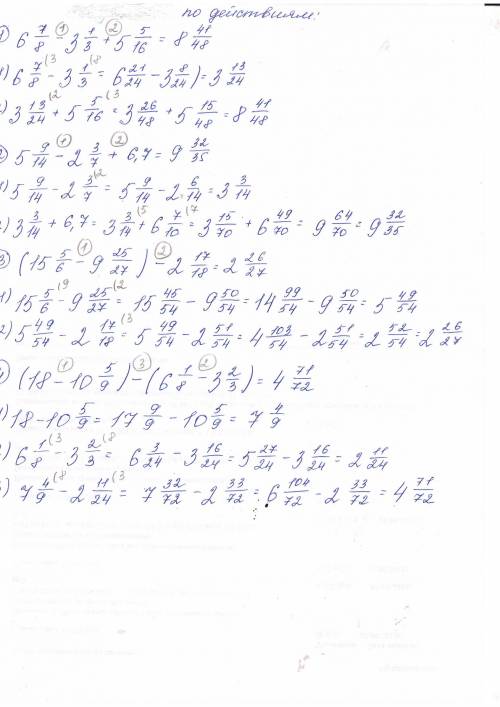 по действиям:
① 6 7/8 - 3 1/3 + 5 5/16 = 8 41/48
1) 6 7/8 - 3 1/3 = 6 21/24 - 3 8/24) = 3 13/24
2) 3 13/24 + 5 5/16 = 3 26/48 + 5 15/48 = 8 41/48
② 5 9/14 - 2 3/7 + 6,7 = 9 32/35
1) 5 9/14 - 2 3/7 = 5 9/14 - 2 6/14 = 3 3/14
2) 3 3/14 + 6,7 = 3 3/14 + 6 7/10 = 3 15/70 + 6 49/70 = 9 64/70 = 9 32/35
③ (15 5/6 - 9 25/27) - 2 17/18 = 2 26/27
1) 15 5/6 - 9 25/27 = 15 45/54 - 9 50/54 = 14 99/54 - 9 50/54 = 5 49/54
2) 5 49/54 - 2 17/18 = 5 49/54 - 2 51/54 = 4 103/54 - 2 51/54 = 2 52/54 = 2 26/27
④ (18 - 10 5/9) - (6 1/8 - 3 2/3) = 4 71/72
1) 18 - 10 5/9 = 17 9/9 - 10 5/9 = 7 4/9
2) 6 1/8 - 3 2/3 = 6 3/24 - 3 16/24 = 5 27/24 - 3 16/24 = 2 11/24
3) 7 4/9 - 2 11/24 = 7 32/72 - 2 33/72 = 6 104/72 - 2 33/72 = 4 71/72